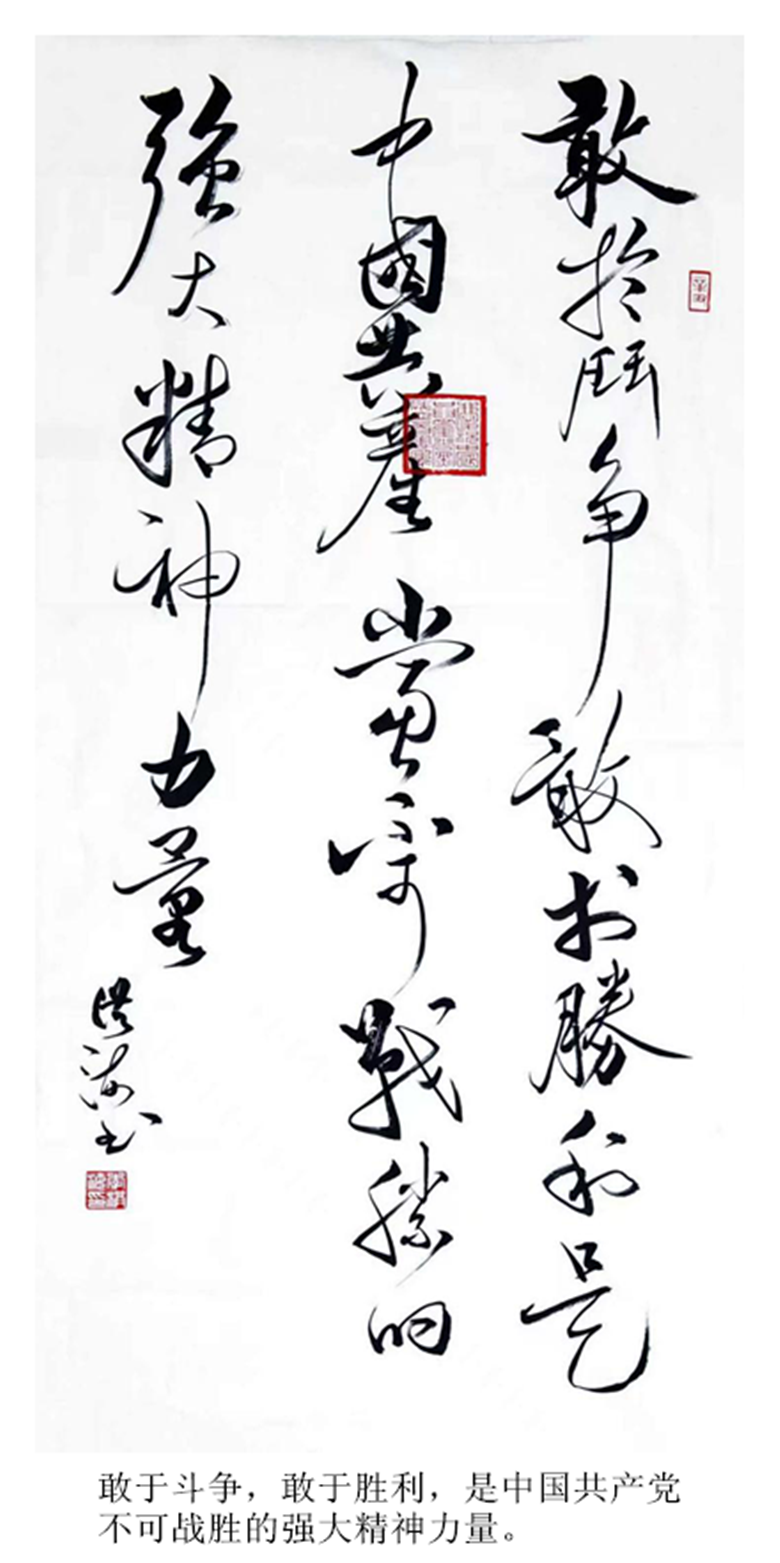 敢於鬥争敢於勝利是
中國共産黨不可戰勝的
強大精神力量
洪海书
敢于斗争，敢于胜利，是中国共产党
不可战胜的强大精神力量。